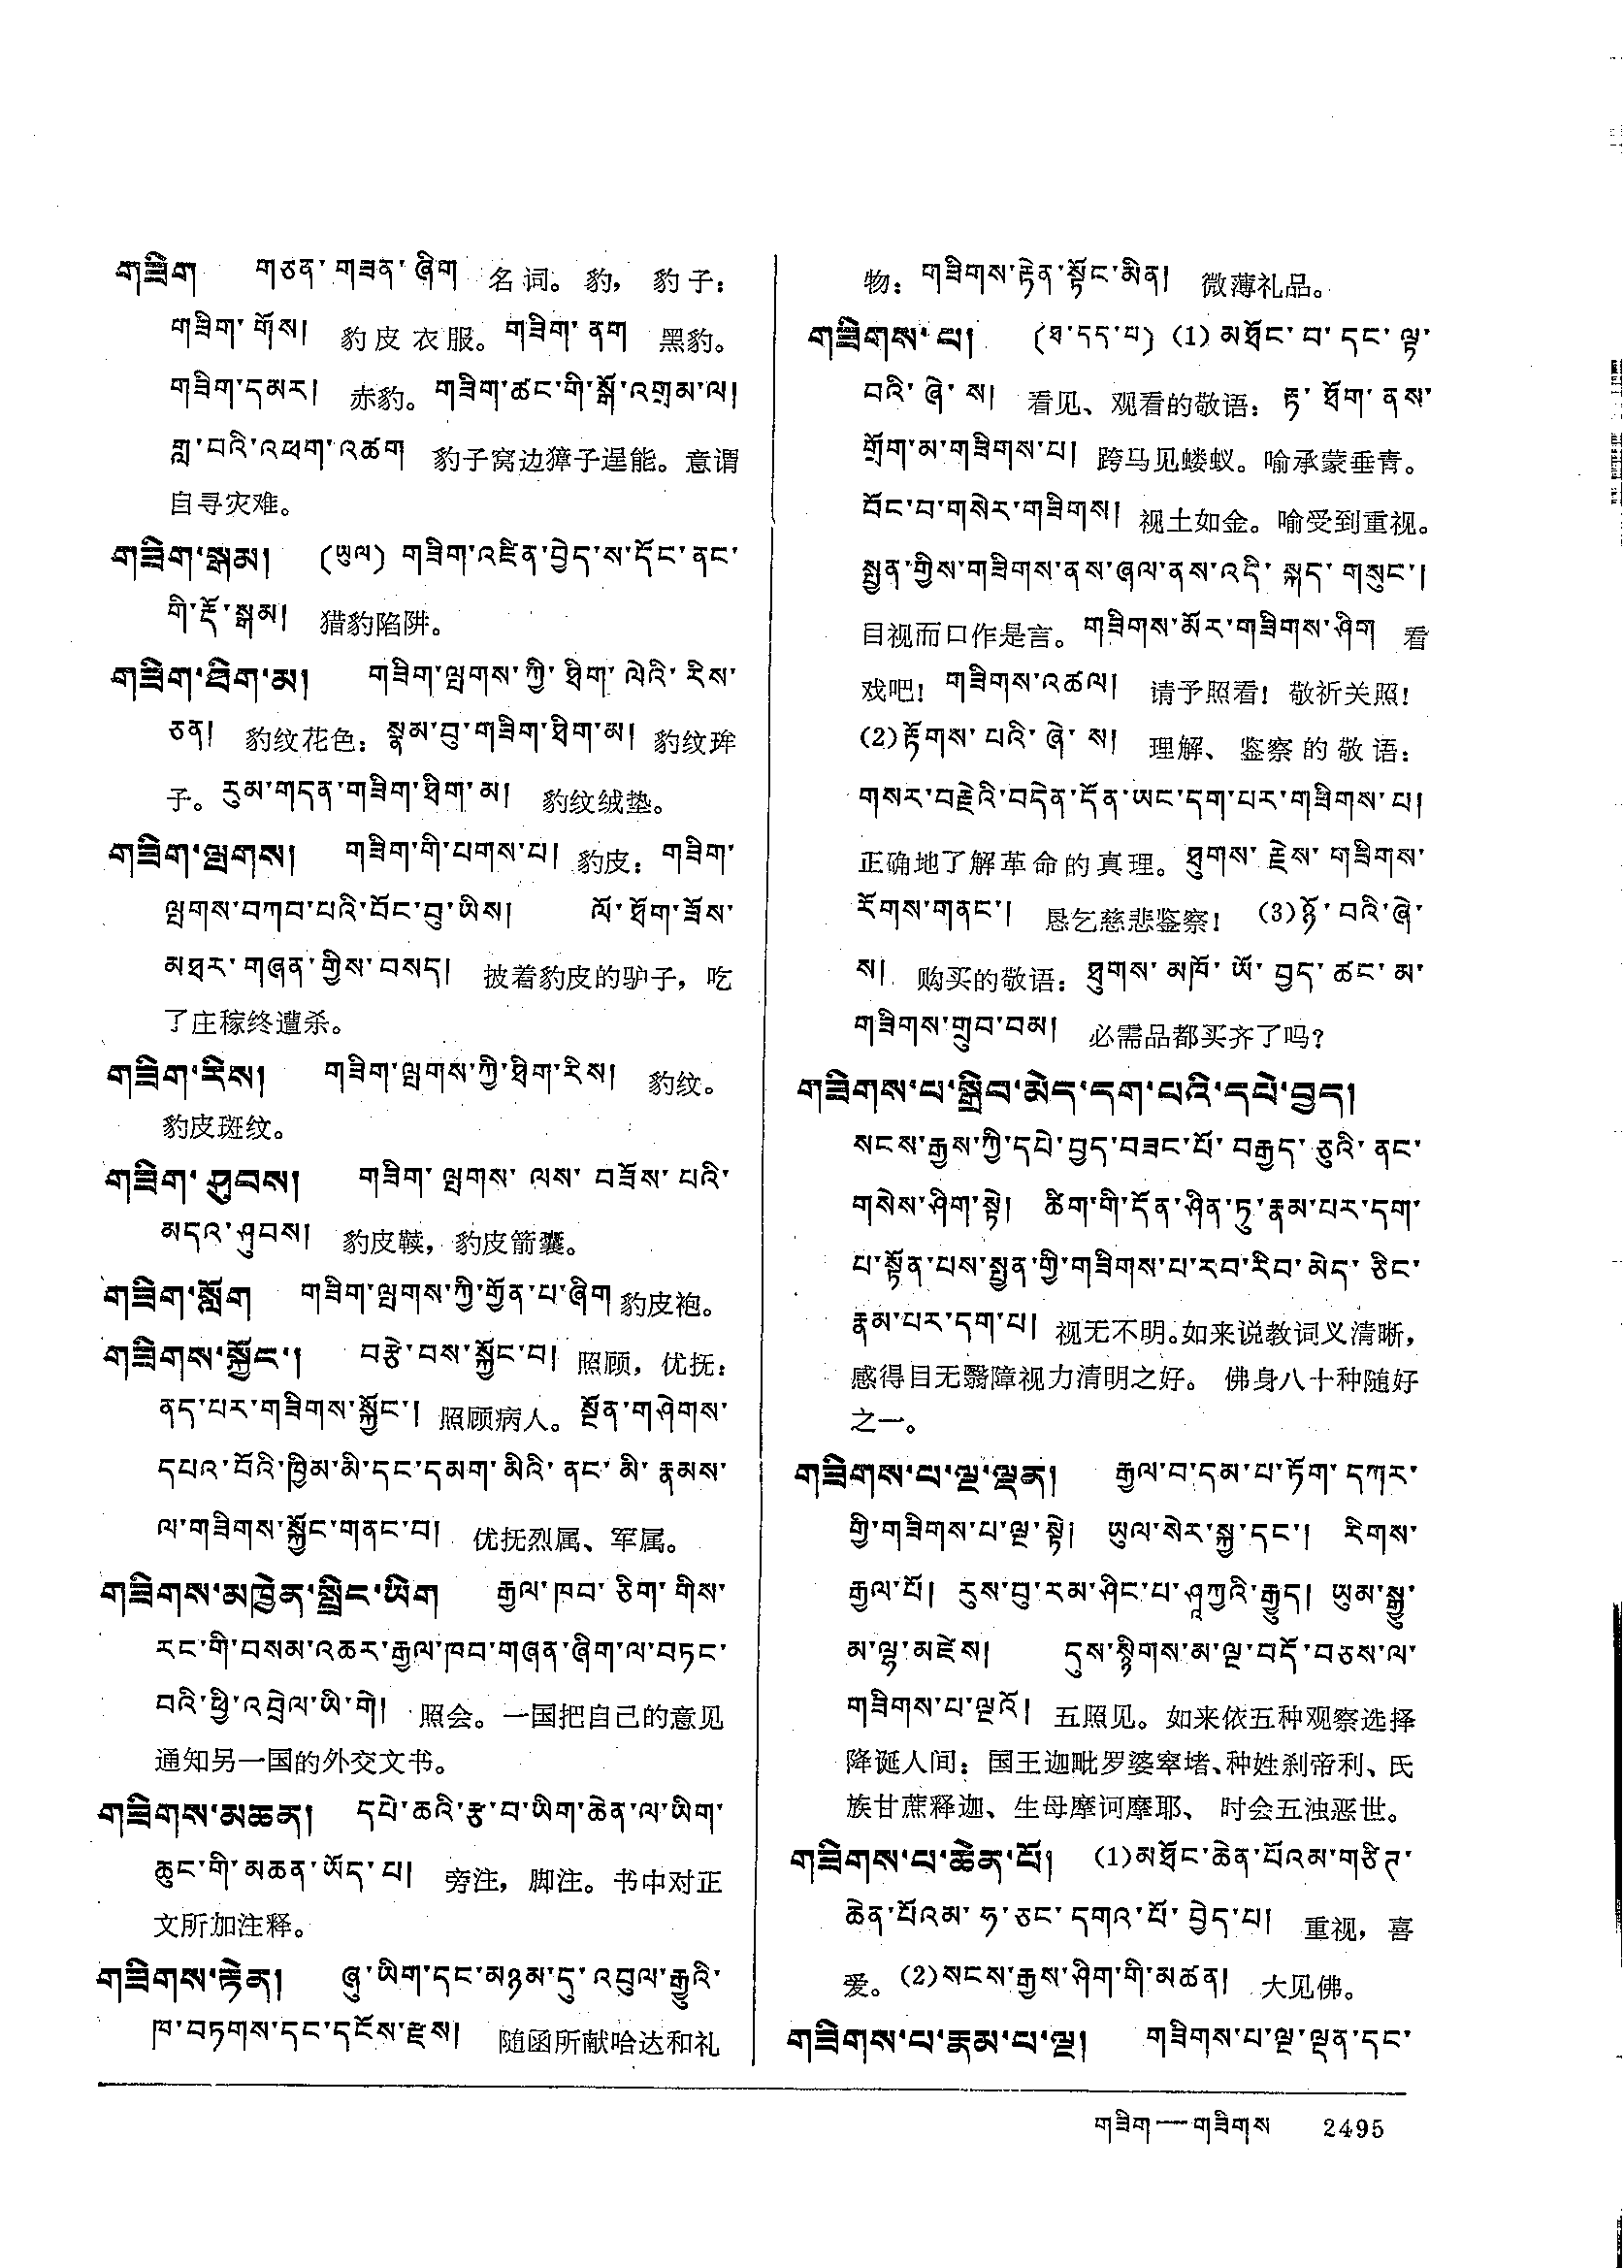 གཟིག གཅན་གཟན་ཞིག 名词。豹，豹子：
གཟིག་གོས། 豹皮衣服。གཟིག་ནག 黑豹。
གཟིག་དམར། 赤豹。གཟིག་ཚང་གི་སྒོ་འགྲམ་ལ།
གླ་བའི་འཕག་འཚག 豹子窝边獐子逞能。意谓
自寻灾难。
གཟིག་སྒམ། (ཡུལ) གཟིག་འཛིན་བྱེད་ས་དོང་ནང་
གི་རྡོ་སྒམ། 猎豹陷阱。
གཟིག་ཐིག་མ། གཟིག་ལྤགས་ཀྱི་ཐིག་ལེའི་རིས་
ཅན། 豹纹花色：སྣམ་བུ་གཟིག་ཐིག་མ། 豹纹珜
子。རུམ་གདན་གཟིག་ཐིག་མ། 豹纹绒垫。
གཟིག་ལྤགས། གཟིག་གི་པགས་པ། 豹皮：གཟིག་
ལྤགས་བཀབ་པའི་བོང་བུ་ཡིས། ལོ་ཐོག་ཟོས་
མཐར་གཞན་གྱིས་བསད། 披着豹皮的驴子，吃
了庄稼终遭杀。
གཟིག་རིས། གཟིག་ལྤགས་ཀྱི་ཐིག་རིས། 豹纹。
豹皮斑纹。
གཟིག་ཤུབས། གཟིག་ལྤགས་ལས་བཟོས་པའི་
མདའ་ཤུབས། 豹皮鞬，豹皮箭囊。
གཟིག་སློག གཟིག་ལྤགས་ཀྱི་གྱོན་པ་ཞིག 豹皮袍。
གཟིགས་སྐྱོང་། བརྩེ་བས་སྐྱོང་བ། 照顾，优抚：
ནད་པར་གཟིགས་སྐྱོང་། 照顾病人。སྔོན་གཤེགས་
དཔའ་བོའི་ཁྱིམ་མི་དང་དམག་མིའི་ནང་མི་རྣམས་
ལ་གཟིགས་སྐྱོང་གནང་བ། 优抚烈属、军属。
གཟིགས་མཁྱེན་སྤྲིང་ཡིག རྒྱལ་ཁབ་ཅིག་གིས་
རང་གི་བསམ་འཆར་རྒྱལ་ཁབ་གཞན་ཞིག་ལ་བཏང་
བའི་ཕྱི་འབྲེལ་ཡི་གེ། 照会。一国把自己的意见
通知另一国的外交文书。
གཟིགས་མཆན། དཔེ་ཆའི་རྩ་བ་ཡིག་ཆེན་ལ་ཡིག་
ཆུང་གི་མཆན་ཡོད་པ། 旁注，脚注。书中对正
文所加注释。
གཟིགས་རྟེན། ཞུ་ཡིག་དང་མཉམ་དུ་འབུལ་རྒྱུའི་
ཁ་བཏགས་དང་དངོས་རྫས། 随函所献哈达和礼
物：གཟིགས་རྟེན་སྟོང་མིན། 微薄礼品。
གཟིགས་པ། (ཐ་དད་པ) (1)མཐོང་བ་དང་ལྟ་
བའི་ཞེ་ས། 看见、观看的敬语：རྟ་ཐོག་ནས་
གྲོག་མ་གཟིགས་པ། 跨马见蝼蚁。喻承蒙垂青。
བོང་བ་གསེར་གཟིགས། 视土如金。喻受到重视。
སྤྱན་གྱིས་གཟིགས་ནས་ཞལ་ནས་འདི་སྐད་གསུང་།
目视而口作是言。གཟིགས་མོར་གཟིགས་ཤིག 看
戏吧！གཟིགས་འཚལ། 请予照看！敬祈关照！
(2)རྟོགས་པའི་ཞེ་ས། 理解、鉴察的敬语：
གསར་བརྗེའི་བདེན་དོན་ཡང་དག་པར་གཟིགས་པ།
正确地了解革命的真理。ཐུགས་རྗེས་གཟིགས་
རོགས་གནང་། 恳乞慈悲鉴察！(3)ཉོ་བའི་ཞེ་
ས། 购买的敬语：ཐུགས་མཁོ་ཡོ་བྱད་ཚང་མ་
གཟིགས་གྲུབ་བམ། 必需品都买齐了吗？
གཟིགས་པ་སྒྲིབ་མེད་དག་པའི་དཔེ་བྱད།
སངས་རྒྱས་ཀྱི་དཔེ་བྱད་བཟང་པོ་བརྒྱད་ཅུའི་ནང་
གསེས་ཤིག་སྟེ། ཚིག་གི་དོན་ཤིན་ཏུ་རྣམ་པར་དག་
པ་སྟོན་པས་སྤྱན་གྱི་གཟིགས་པ་རབ་རིབ་མེད་ཅིང་
རྣམ་པར་དག་པ། 视无不明。如来说教词义清晰，
感得目无翳障视力清明之好。佛身八十种随好
之一。
གཟིགས་པ་ལྔ་ལྡན། རྒྱལ་བ་དམ་པ་ཏོག་དཀར་
གྱི་གཟིགས་པ་ལྔ་སྟེ། ཡུལ་སེར་སྐྱ་དང་། རིགས་
རྒྱལ་པོ། རུས་བུ་རམ་ཤིང་པ་ཤཱཀྱའི་རྒྱུད། ཡུམ་སྒྱུ་
མ་ལྷ་མཛེས། དུས་སྙིགས་མ་ལྔ་བདོ་བཅས་ལ་
གཟིགས་པ་ལྔའོ། 五照见。如来依五种观察选择
降诞人间：国王迦毗罗婆窣堵、种姓刹帝利、氏
族甘蔗释迦、生母摩诃摩耶、时会五浊恶世。
གཟིགས་པ་ཆེན་པོ། (1)མཐོང་ཆེན་པོའམ་གཙིཊ་
ཆེན་པོའམ་ཧ་ཅང་དགའ་པོ་བྱེད་པ། 重视，喜
爱。(2)སངས་རྒྱས་ཤིག་གི་མཚན། 大见佛。
གཟིགས་པ་རྣམ་པ་ལྔ། གཟིགས་པ་ལྔ་ལྡན་དང་
གཟིག—གཟིགས 2495